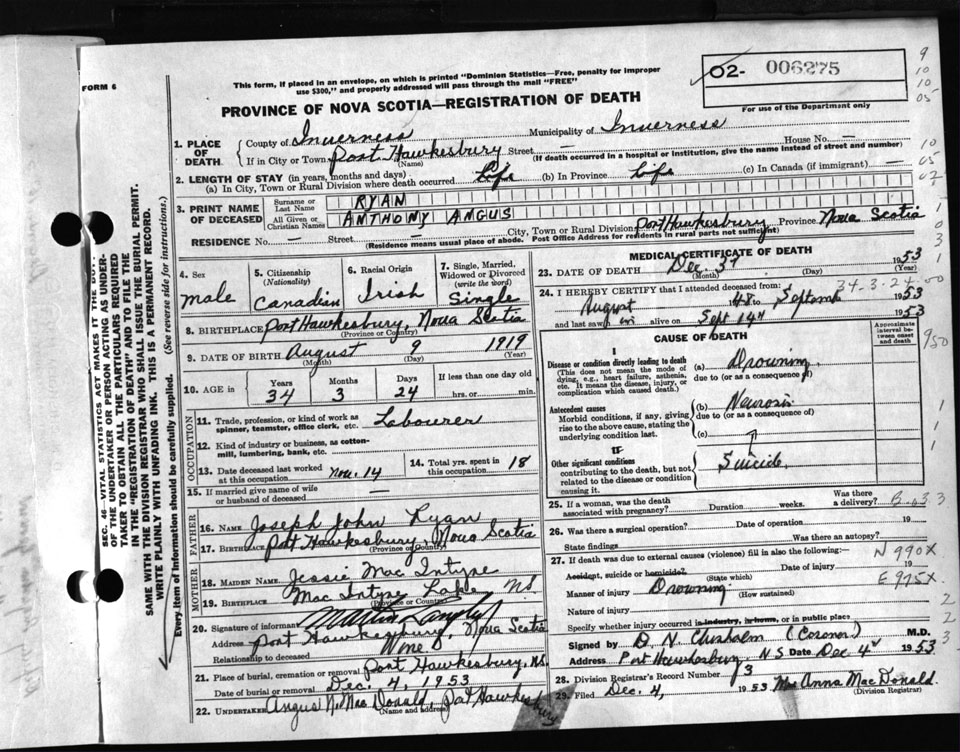 FORM 6
This form, if placed in an envelope, on which is printed "Dominion Statistics—Free, penalty for improper
use $300," and properly addressed will pass through the mail "FREE"
PROVINCE OF NOVA SCOTIA—REGISTRATION OF DEATH
02- 006275
For use of the Department only
SEC. 46—VITAL STATISTICS ACT MAKES IT THE DUTY
OF THE UNDERTAKER OR PERSON ACTING AS UNDER-
TAKER TO OBTAIN ALL THE PARTICULARS REQUIRED
IN THE "REGISTRATION OF DEATH" AND TO FILE THE
SAME WITH THE DIVISION REGISTRAR WHO SHALL ISSUE THE BURIAL PERMIT.
WRITE PLAINLY WITH UNFADING INK. THIS IS A PERMANENT RECORD.
Every item of Information should be carefully supplied. (See reverse side for instructions.)
1. PLACE OF DEATH
County of Inverness Municipality of Inverness
If in City or Town Port Hawkesbury Street — House No. —
(Name) (If death occurred in a hospital or institution, give the name instead of street and number)
2. LENGTH OF STAY (in years, months and days)
(a) In City, Town or Rural Division where death occurred Life (b) In Province Life (c) In Canada (if immigrant) —
3. PRINT NAME OF DECEASED
Surname or Last Name RYAN
All Given or Christian Names ANTHONY ANGUS
RESIDENCE No. — Street — City, Town or Rural Division Port Hawkesbury Province Nova Scotia
(Residence means usual place of abode. Post Office Address for residents in rural parts not sufficient)
4. Sex
male
5. Citizenship (Nationality)
Canadian
6. Racial Origin
Irish
7. Single, Married, Widowed or Divorced (write the word)
Single
8. BIRTHPLACE Port Hawkesbury, Nova Scotia
(Province or Country)
9. DATE OF BIRTH August 9 1919
(Month) (Day) (Year)
10. AGE in Years Months Days If less than one day old
34 3 24 hrs. or min.
OCCUPATION
11. Trade, profession, or kind of work as
spinner, teamster, office clerk, etc. Labourer
12. Kind of industry or business, as cotton-
mill, lumbering, bank, etc.
13. Date deceased last worked
at this occupation Nov. 14
14. Total yrs. spent in
this occupation 18
15. If married give name of wife
or husband of deceased —
FATHER
16. NAME Joseph John Ryan
17. BIRTHPLACE Port Hawkesbury, Nova Scotia
(Province or Country)
MOTHER
18. MAIDEN NAME Jessie Mac Intyre
19. BIRTHPLACE Mac Intyre Lake NS.
(Province or Country)
20. Signature of informant Martin
Address Port Hawkesbury, Nova Scotia
Relationship to deceased None
21. Place of burial, cremation or removal Port Hawkesbury, NS.
Date of burial or removal Dec. 4, 1953
22. UNDERTAKER Angus N. Mac Donald, Port Hawkesbury
(Name and address)
MEDICAL CERTIFICATE OF DEATH
23. DATE OF DEATH Dec. 1953
(Month) (Day) (Year)
34-3-24-00
24. I HEREBY CERTIFY that I attended deceased from:
August 48 to Septemb 1953
and last saw alive on Sept 14th 1953
CAUSE OF DEATH
Approximate interval between onset and death
I
Disease or condition directly leading to death
(This does not mean the mode of
dying, e.g., heart failure, asthenia,
etc. It means the disease, injury, or
complication which caused death.)
(a) Drowning
due to (or as a consequence of)
Antecedent causes
Morbid conditions, if any, giving
rise to the above cause, stating the
underlying condition last.
(b) Neurosis
due to (or as a consequence of)
(c)
II
Other significant conditions
contributing to the death, but not
related to the disease or condition
causing it.
Suicide.
25. If a woman, was the death
associated with pregnancy? Duration weeks. Was there a delivery?
26. Was there a surgical operation? Date of operation 19
State findings Was there an autopsy?
27. If death was due to external causes (violence) fill in also the following: N 990X
Accident, suicide or homicide? Date of injury 19
(State which)
E 975X
Manner of injury Drowning
(How sustained)
Nature of injury
Specify whether injury occurred in industry, in home, or in public place
Signed by D. N. Chisholm (Coroner) M.D.
Address Port Hawkesbury, N S Date Dec 4 1953
28. Division Registrar's Record Number 73
29. Filed Dec. 4, 1953 Mrs Anna Mac Donald.
(Division Registrar)